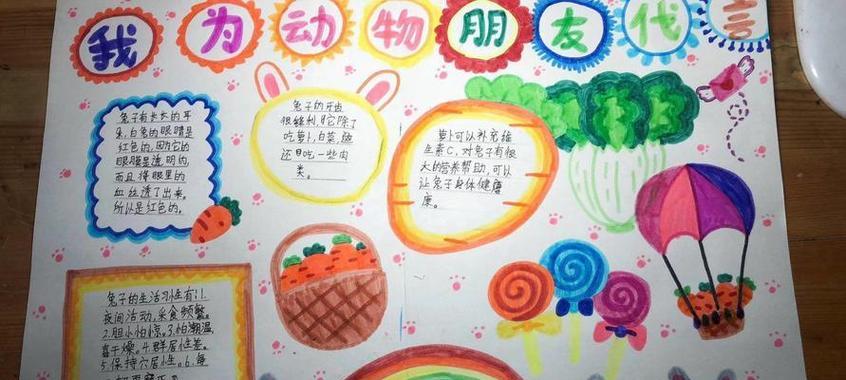 我为动物朋友代言
兔子有长长的耳
朵,白兔的眼睛是
红色的,因为它的
眼睛是透明的,
而且得眼里的
血丝透了出来,
所以是红色的。
兔子的牙齿
很锋利,它除了
吃萝卜,白菜,
还日吃一些肉
类。
萝卜可以补充维
生素C,对兔子有很
大的营养帮助,可以
让兔子身体健康
康。
兔子的生活习性有:1.
夜间活动,采食频繁。
2.胆小怕惊。3.怕潮湿,
喜干燥。4.群居性差。
5.保持穴居性。6.